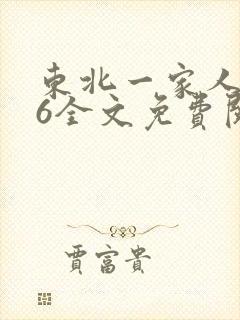 東北一家人
6全文免費閱
賈富貴